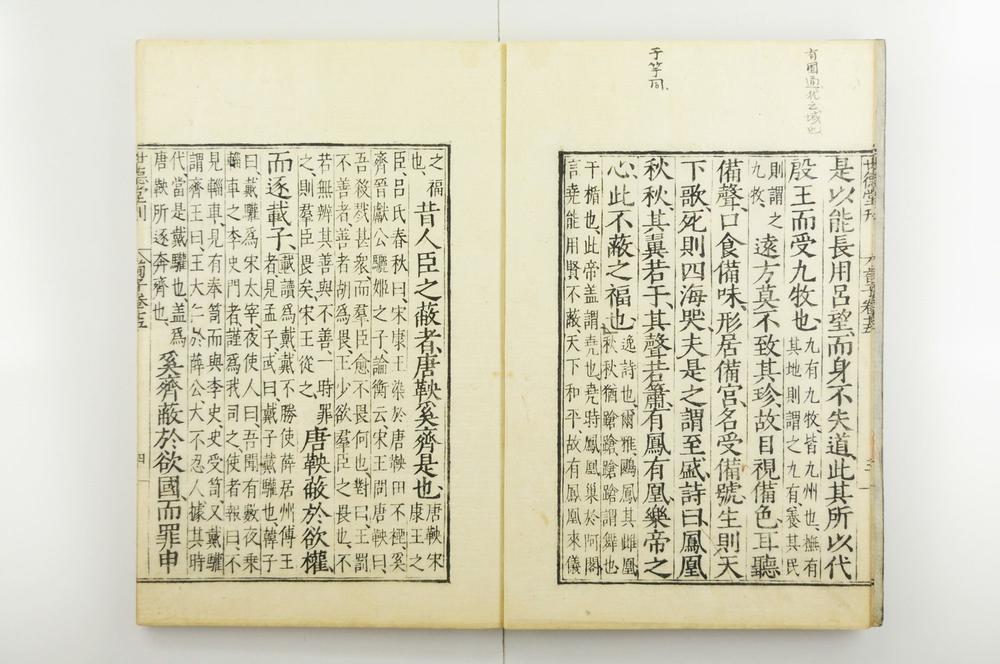 于竽同
世德堂刊
荀子卷十五
三
是以能長用呂望、而身不失道、此其所以代
殷王而受九牧也、
九有九牧、皆九州也、撫有
其地則謂之九有、養其民
則謂之
九牧、
遠方莫不致其珍、故目視備色、耳聽
備聲、口食備味、形居備宮、名受備號、生則天
下歌、死則四海哭、夫是之謂至盛、詩曰、鳳凰
秋秋、其翼若干、其聲若簫、有鳳有凰、樂帝之
心、此不蔽之福也、
逸詩也、爾雅鶠鳳、其雌凰
秋秋猶蹌蹌、蹌蹌謂舞也
干楯也、此帝盖謂堯也、堯時鳳凰巢於阿閣
言堯能用賢不蔽、天下和平、故有鳳凰來儀
之福
也、
昔人臣之蔽者、唐鞅奚齊是也、
唐鞅宋
康王之
臣、呂氏春秋曰、宋康王染於唐鞅田不禋、奚
齊晉獻公驪姬之子、論衡云、宋王問唐鞅曰、
吾殺戮甚衆、而羣臣愈不畏何也、對曰、王罰
不善者、善者胡爲畏、王少欲羣臣之畏也、不
若無辨其善與不善、一時罪
之、則羣臣畏矣、宋王從之、
唐鞅蔽於欲權、
而逐載子、
載讀爲戴、戴不勝使薛居州傅王
者、見孟子、或曰、戴子、戴驩也、韓子
曰、戴驩爲宋太宰、夜使人曰、吾聞有數夜乘
轀車之李史門者、謹爲我司之、使者報曰、不
見轀車、見有奉笥而與李史、史受笥、又戴驩
謂齊王曰、王大仁於薛公、大不忍人、據其時
代、當是戴驩也、盖爲
唐鞅所逐、奔齊也、
奚齊蔽於欲國、而罪申
世德堂刊
荀子卷十五
四